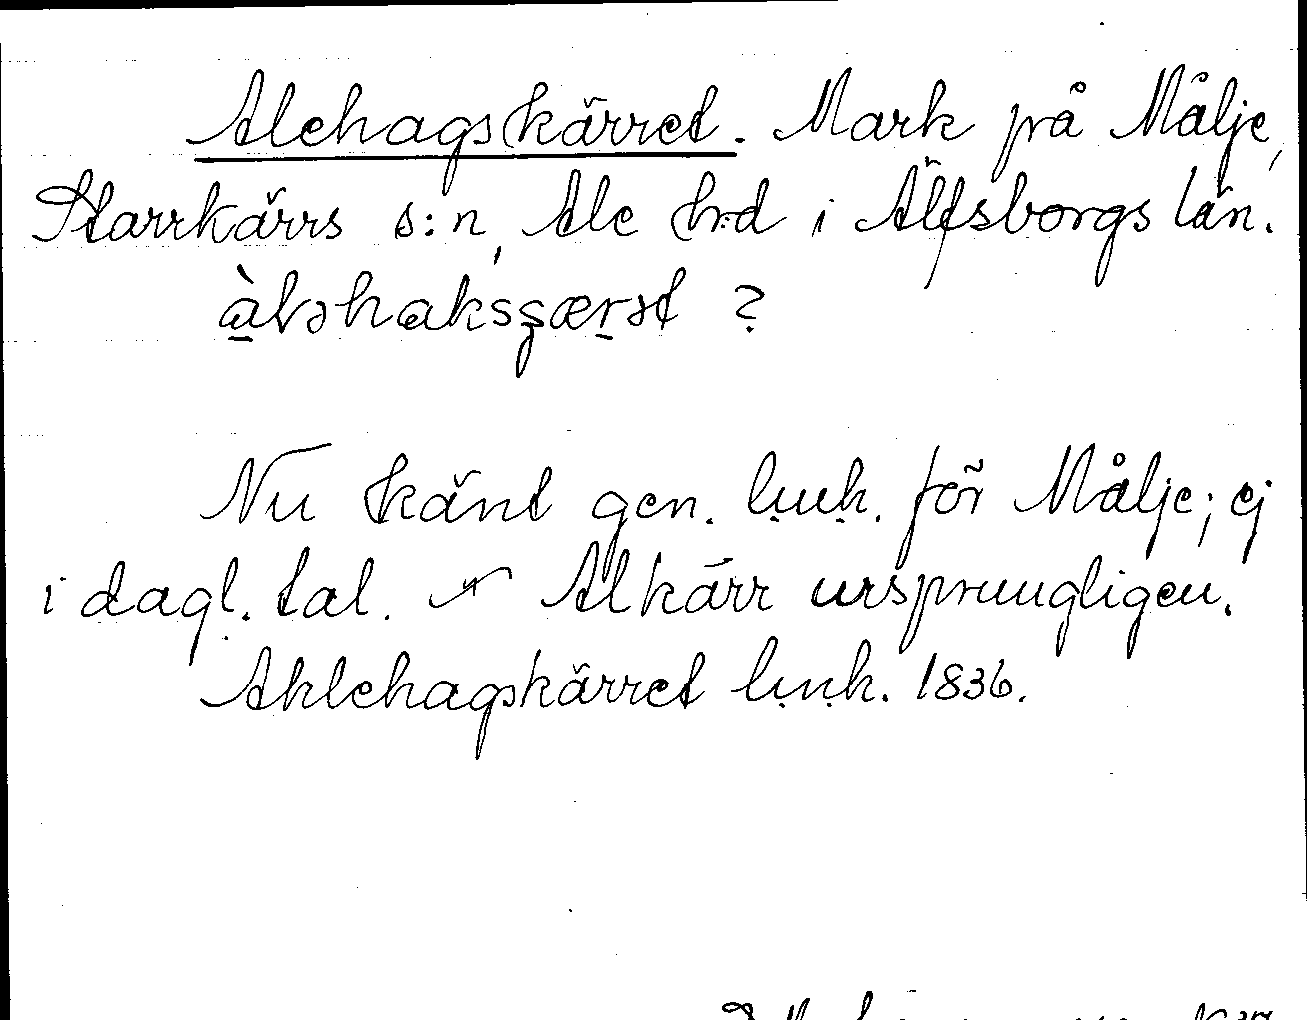 Alehagskärret. Mark på Målje,
Starrkärrs s:n, Ale hrd i Älfsborgs län.
àləhaksʂærət ?
Nu känt gen. l.u.k. för Målje; ej
i dagl. tal. Alkärr ursprungligen.
Ahlehagskärret l.n.k. 1836.